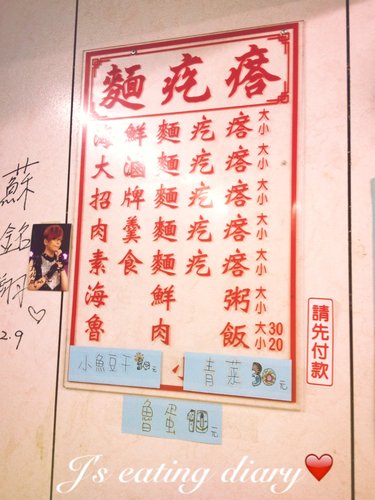 麵疙瘩
海鮮麵疙瘩 大 小
大滷麵疙瘩 大 小
招牌麵疙瘩 大 小
肉羹麵疙瘩 大 小
素食麵疙瘩 大 小
海鮮粥 大 小
魯肉飯 大30 小20
小魚豆干30元
青菜30元
魯蛋10元
請先付款
蘇銘翔
2.9
J's eating diary